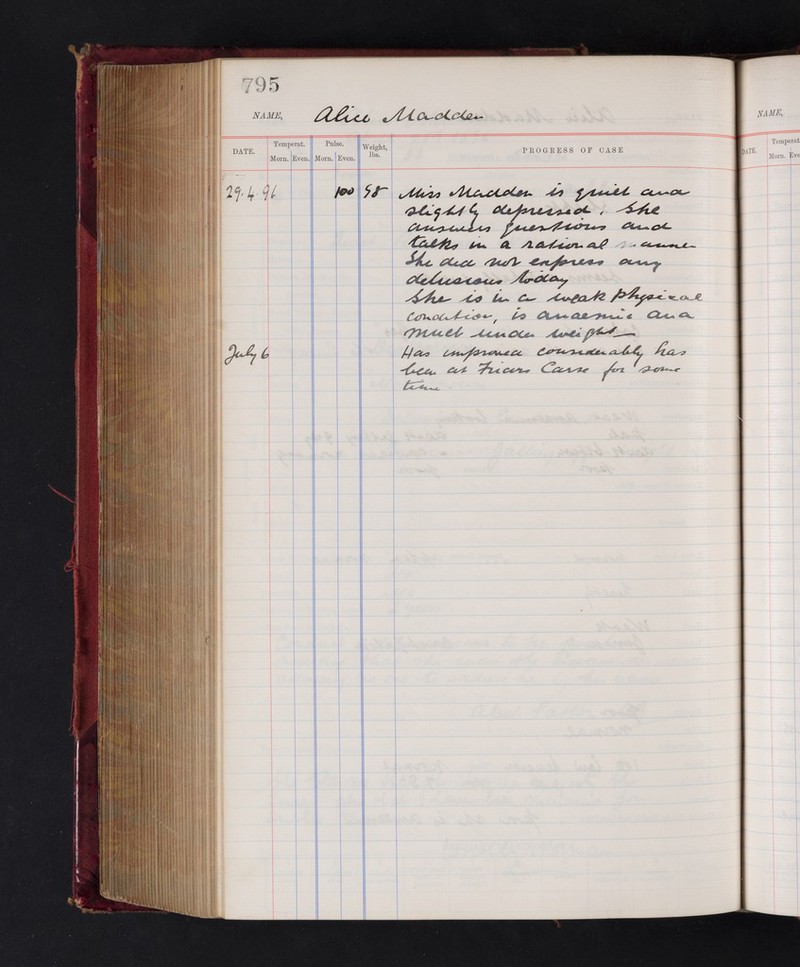 795
NAME, Alice Madden
DATE. Temperat. Morn. Even. Pulse. Morn. Even. Weight, lbs. PROGRESS OF CASE
29. 4 96 100 98 Miss Madden is quiet and
slightly depressed. She
answers questions and
talks in a rational manner
She did not express any
delusions today
She is in a weak physical
condition, is anaemic and
much under weight
July 6 Has improved considerably has
been at Friars Carse for some
time.
NAME,
DATE. Temperat.
Morn. Eve